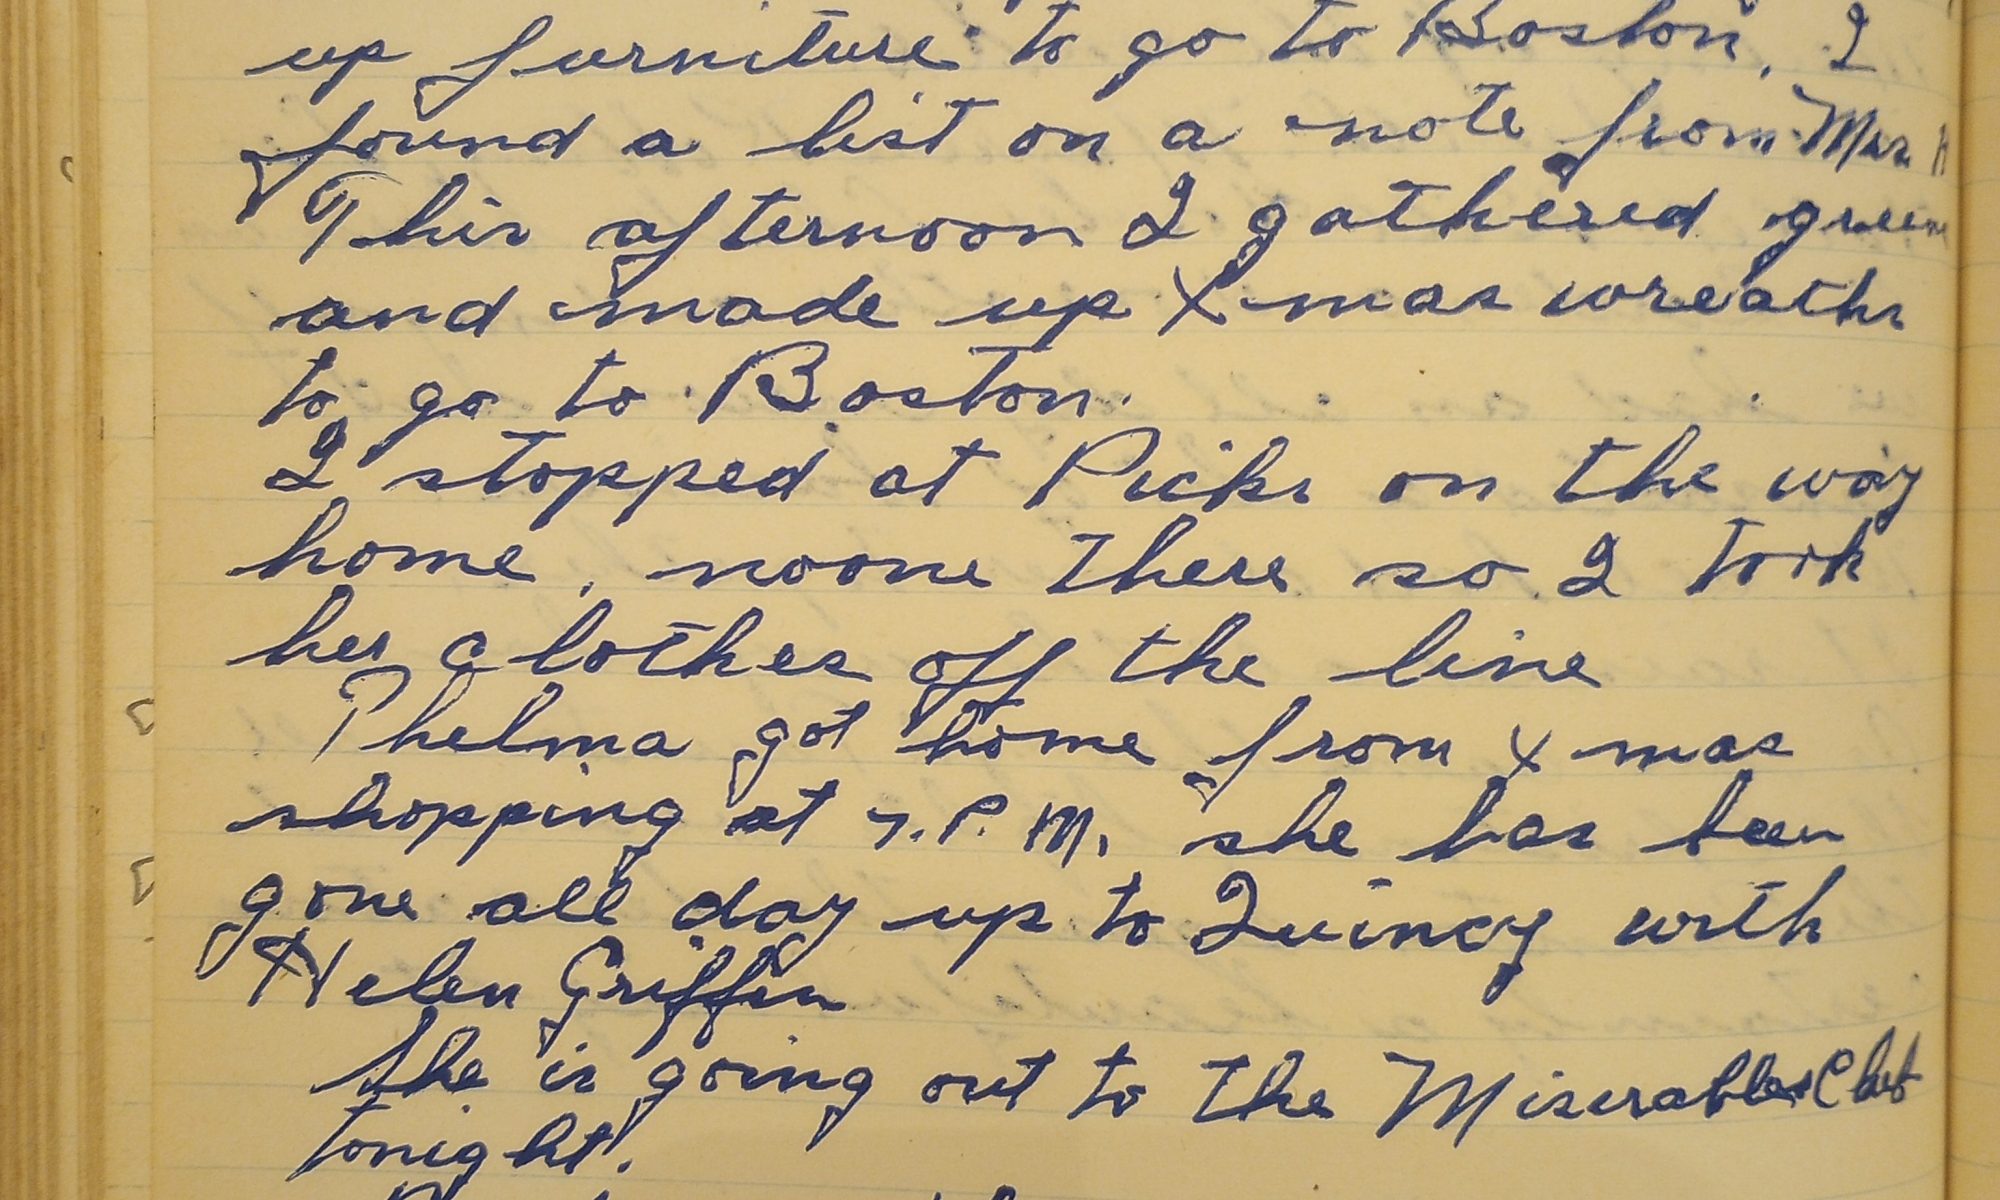 up furniture to go to Boston, I
found a list on a note from Mrs H
This afternoon I gathered greens
and made up Xmas wreaths
to go to Boston.
I stopped at Picks on the way
home, noone there so I took
her clothes off the line
Thelma got home from Xmas
shopping at 7. P. M. she has been
gone all day up to Quincy with
Helen Griffin
She is going out to the Miserables Club
tonight.